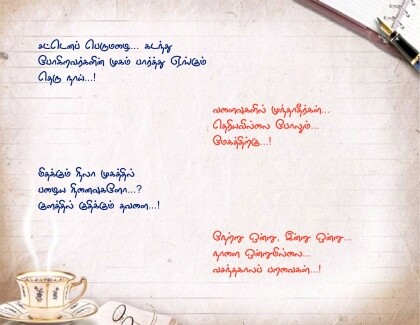 சட்டெனப் பெருமழை... கடந்து
போகிறவர்களின் முகம் பார்த்து ஏங்கும்
தெரு நாய்...!
வளைவுகளில் முந்தாதீர்கள்...
தெரியவில்லை போலும்...
மேகத்திற்கு...!
மிதக்கும் நிலா முகத்தில்
பழைய நினைவுகளோ...?
குளத்தில் குதிக்கும் தவளை...!
நேற்று ஒன்று, இன்று ஒன்று...
நாளை ஒன்றுமில்லை...
வசந்தகாலப் பறவைகள்...!